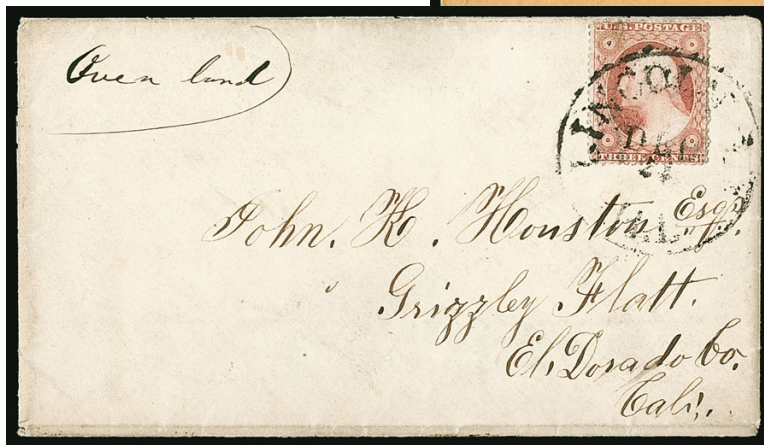 Over land
U.S. POSTAGE
THREE CENTS
LINCOLN
DEC
24
CAL
John. H. Houston Esqr.
Grizzley Flatt.
El, Dorado Co.
Cali,.